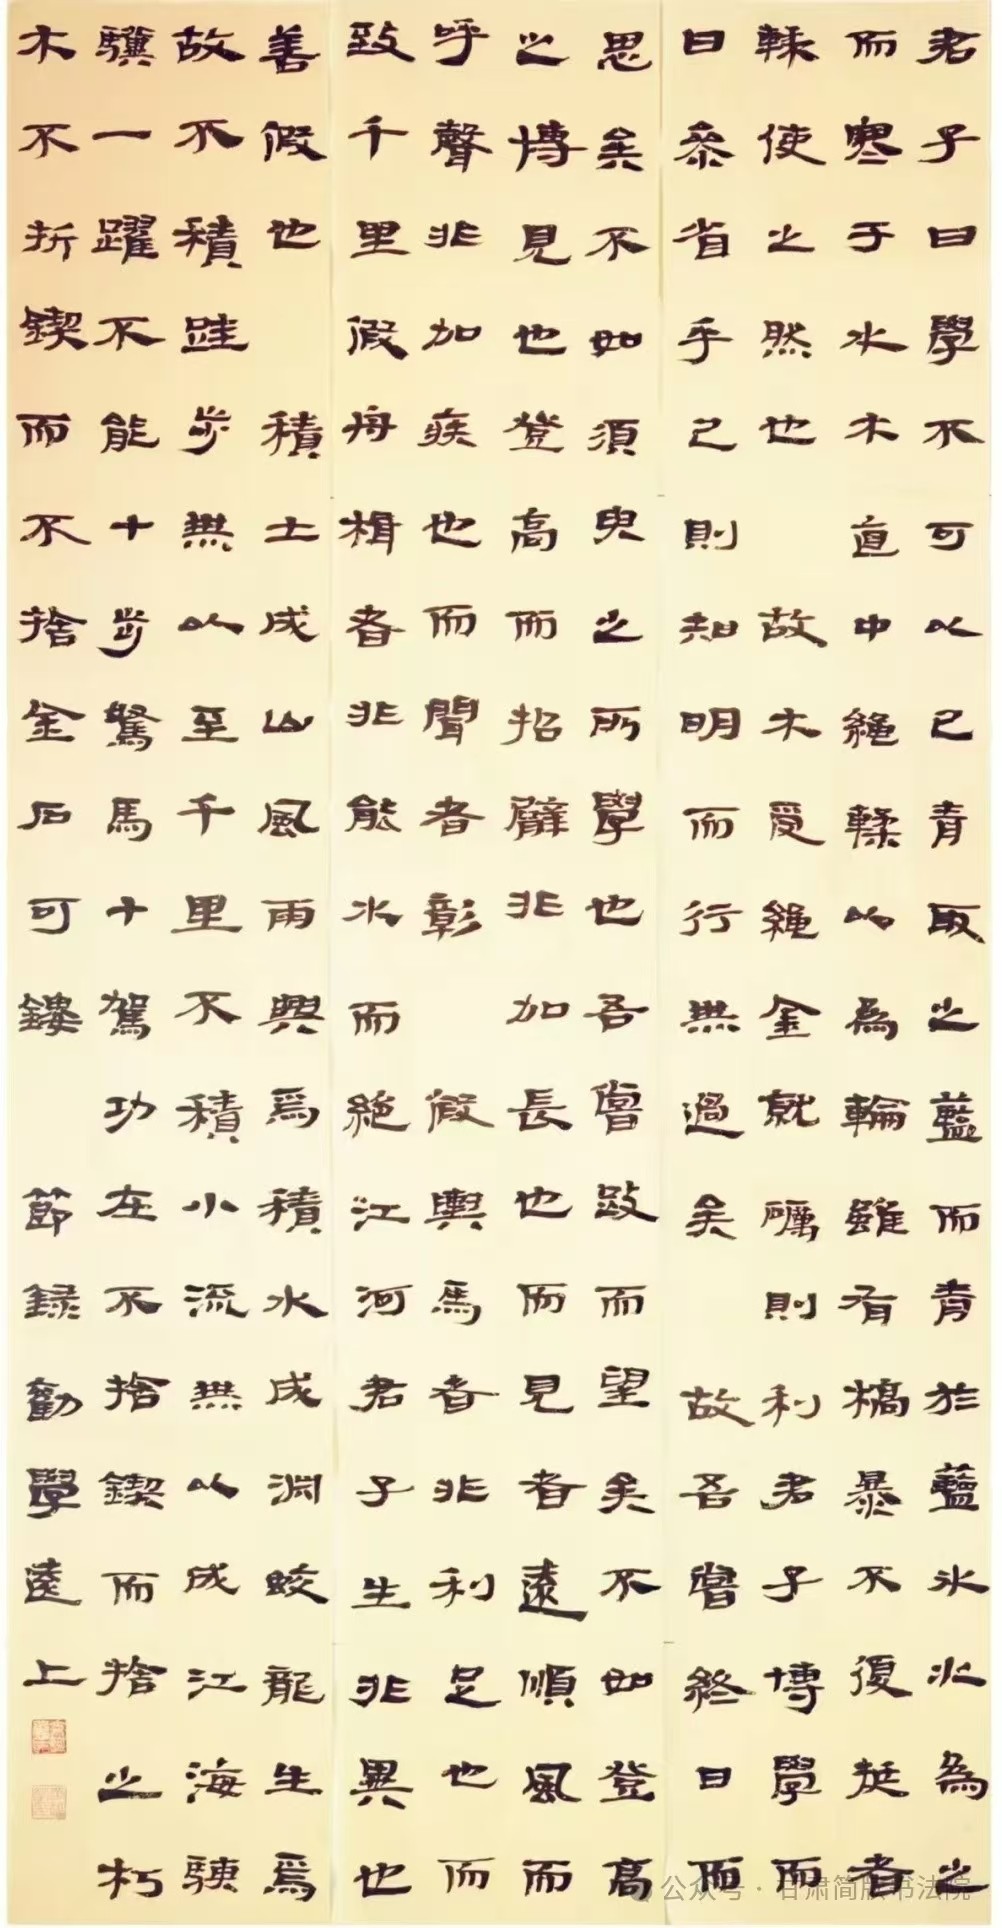 君子曰學不可以已青取之藍而青於藍冰水為之
而寒于水木直中繩輮以為輪雖有槁暴不復挺者
輮使之然也 故木受繩金就礪則利君子博學而
日參省乎己則知明而行無過矣 故吾嘗終日而
思矣不如須臾之所學也吾嘗跂而望矣不如登高
之博見也登高而招臂非加長也而見者遠順風而
呼聲非加疾也而聞者彰 假輿馬者非利足也而
致千里假舟楫者非能水而絕江河君子生非異也
善假也 積土成山風雨興焉積水成淵蛟龍生焉
故不積跬步無以至千里不積小流無以成江海騏
驥一躍不能十步駑馬十駕功在不捨鍥而捨之朽
木不折鍥而不捨金石可鏤 節錄勸學遠上
公众号·甘肃简牍书法院